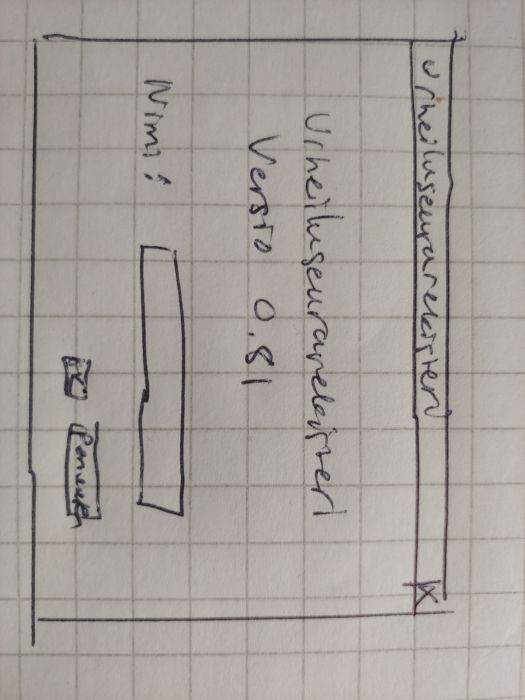 Urheiluseurarekisteri X
Urheiluseurarekisteri
Versio 0.81
Nimi:
OK Peruuta